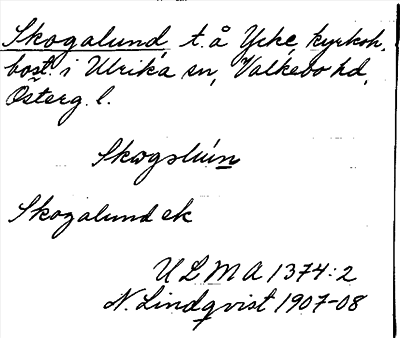 Skogalund, t. å Ycke, kyrkoh.
bost. i Ulrika sn, Valkebo hd,
Österg. l.
Skogslun
Skogalund ek
ULMA 1374:2
N. Lindqvist 1907-08